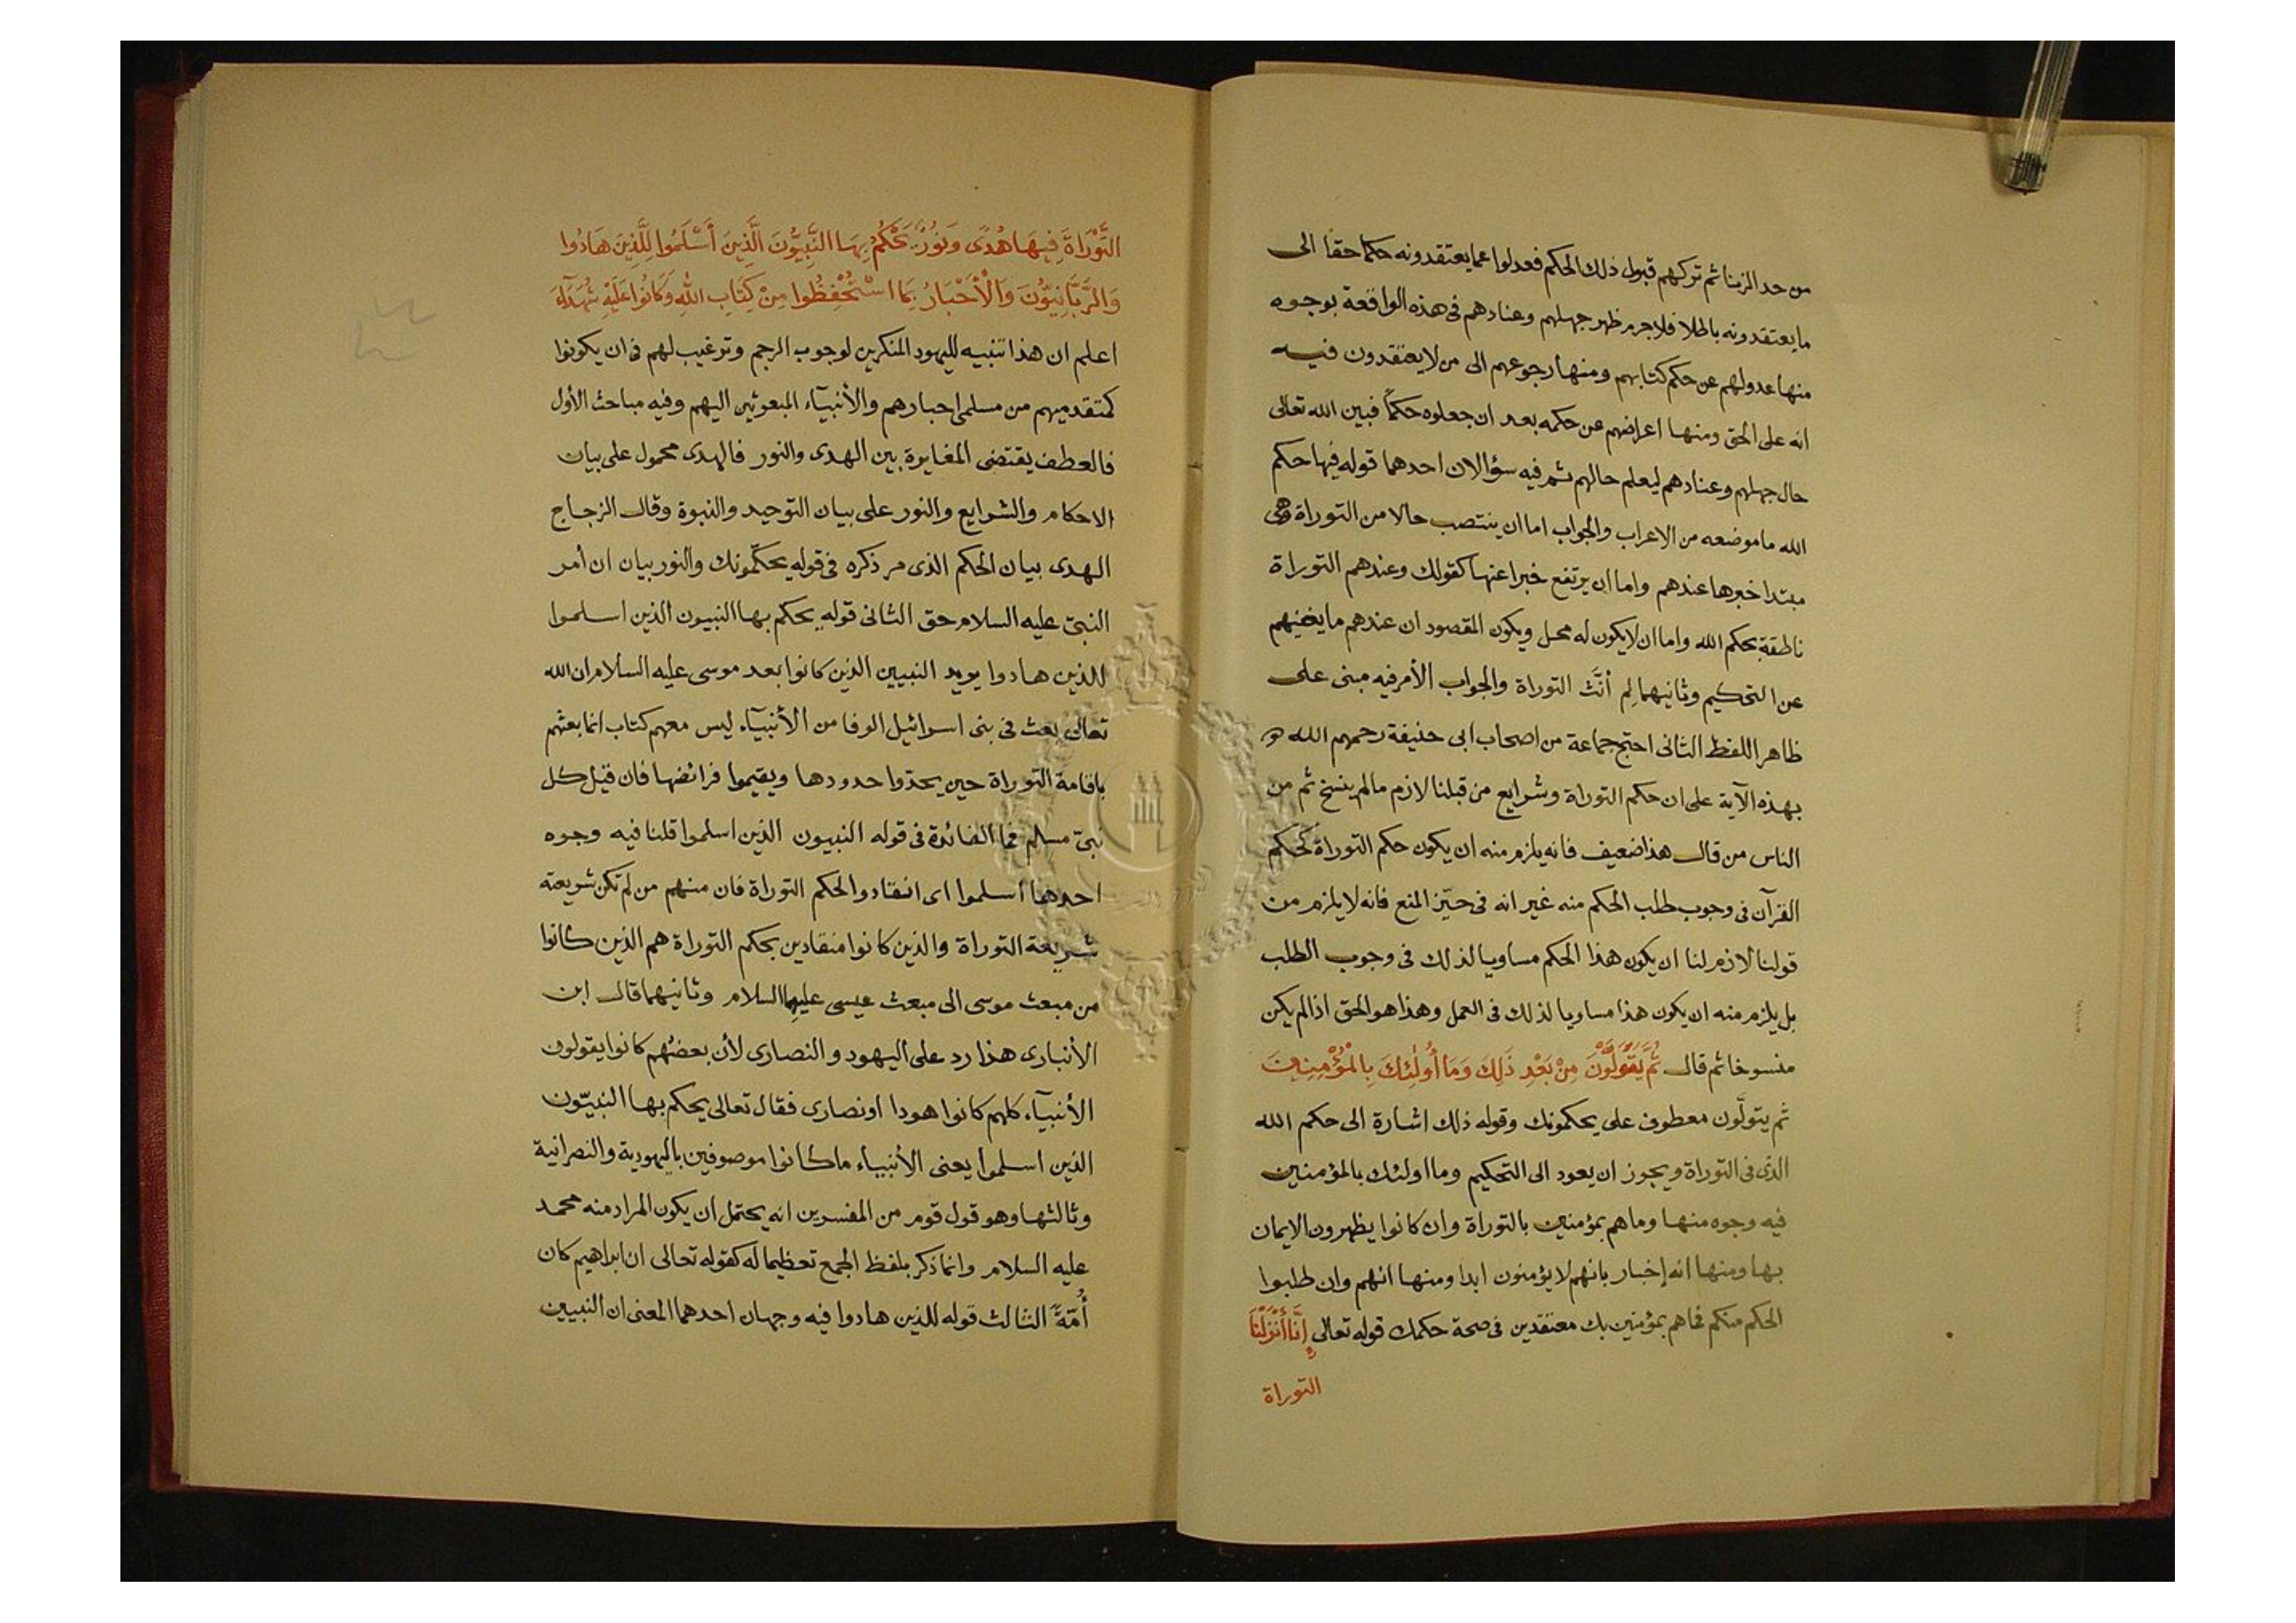 من حد الزنا ثم تركهم قبول ذلك الحكم فعدلوا عما يعتقدونه حكما حقا الى
ما يعتقدونه باطلا فلا جرم ظهر جهلهم وعنادهم فى هذه الواقعة بوجوه
منها عدولهم عن حكم كتابهم ومنها رجوعهم الى من لا يعتقدون فيه
انه على الحق ومنها اعراضهم عن حكمه بعد ان جعلوه حكمًا فبين الله تعالى
حال جهلهم وعنادهم ليعلم حالهم ثم فيه سؤالان احدهما قوله فيها حكم
الله ما موضعه من الاعراب والجواب اما ان ينتصب حالا من التوراة وهى
مبتدا خبرها عندهم واما ان يرتفع خبرا عنها كقولك وعندهم التوراة
ناطقة بحكم الله واما ان لا يكون له محل ويكون المقصود ان عندهم ما يغنيهم
عن التحكيم وثانيهما لِم أنّث التوراة والجواب الأمر فيه مبنى على
ظاهر اللفظ الثانى احتج جماعة من اصحاب ابى حنيفة رحمهم الله
بهذه الآية على ان حكم التوراة وشرايع من قبلنا لازم ما لم ينسخ ثم من
الناس من قال هذا ضعيف فانه يلزم منه ان يكون حكم التوراة كحكم
القرآن فى وجوب طلب الحكم منه غير انه فى حيّز المنع فانه لا يلزم من
قولنا لازم لنا ان يكون هذا الحكم مساويا لذلك فى وجوب الطلب
بل يلزم منه ان يكون هذا مساويا لذلك فى العمل وهذا هو الحق اذا لم يكن
منسوخا ثم قال ثُمَّ يَتَوَلَّوْنَ مِنْ بَعْدِ ذَلِكَ وَمَا أُولٰئِكَ بِالْمُؤْمِنِينَ
ثم يتولّون معطوف على يحكمونك وقوله ذلك اشارة الى حكم الله
الذى فى التوراة ويجوز ان يعود الى التحكيم وما اولئك بالمؤمنين
فيه وجوه منها وما هم بمؤمنين بالتوراة وان كانوا يظهرون الايمان
بها ومنها انه إخبار بانهم لا يؤمنون ابدا ومنها انهم وان طلبوا
الحكم منكم فما هم بمؤمنين بك معتقدين فى صحة حكمك قوله تعالى إِنَّا أَنْزَلْنَا
التوراة
التَّوْرَاةَ فِيهَا هُدًى وَنُورٌ يَحْكُمُ بِهَا النَّبِيُّونَ الَّذِينَ أَسْلَمُوا لِلَّذِينَ هَادُوا
وَالرَّبَّانِيُّونَ وَالْأَحْبَارُ بِمَا اسْتُحْفِظُوا مِنْ كِتَابِ اللهِ وَكَانُوا عَلَيْهِ شُهَدَآءَ
اعلم ان هذا تنبيه لليهود المنكرين لوجوب الرجم وترغيب لهم فى ان يكونوا
كمتقدميهم من مسلمى احبارهم والأنبيآء المبعوثين اليهم وفيه مباحث الأول
فالعطف يقتضى المغايرة بين الهدى والنور فالهدى محمول على بيان
الاحكام والشرايع والنور على بيان التوحيد والنبوة وقال الزجاج
الهدى بيان الحكم الذى مر ذكره فى قوله يحكّمونك والنور بيان ان أمر
النبىّ عليه السلام حق الثانى قوله يحكم بها النبيون الذين اسلموا
للذين هادوا يريد النبيين الذين كانوا بعد موسى عليه السلام ان الله
تعالى بعث فى بنى اسرائيل الوفا من الأنبيآء ليس معهم كتاب انما بعثهم
باقامة التوراة حين يحدّوا حدودها ويقيموا فرائضها فان قيل كل
نبىّ مسلم فما الفائدة فى قوله النبيون الذين اسلموا قلنا فيه وجوه
احدهما أسلموا اى انقادوا لحكم التوراة فان منهم من لم تكن شريعته
شريعة التوراة والذين كانوا منقادين بحكم التوراة هم الذين كانوا
من مبعث موسى الى مبعث عيسى عليهما السلام وثانيهما قال ابن
الأنبارى هذا رد على اليهود والنصارى لأن بعضهم كانوا يقولون
الأنبيآء كلهم كانوا هودا او نصارى فقال تعالى يحكم بها النبيّون
الذين اسلموا يعنى الأنبياء ما كانوا موصوفين باليهودية والنصرانية
وثالثها وهو قول قوم من المفسرين انه يحتمل ان يكون المراد منه محمد
عليه السلام وانما ذكر بلفظ الجمع تعظيما له كقوله تعالى ان ابراهيم كان
أُمّةً الثالث قوله للذين هادوا فيه وجهان احدهما المعنى ان النبيين